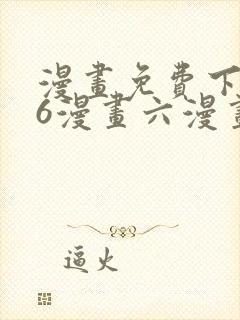 漫畫免費下
6漫畫六漫畫
逼火